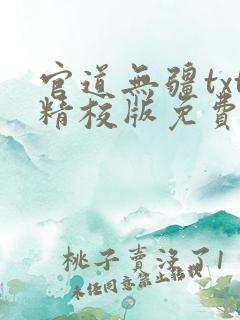 官道無疆txt
精校版免費
桃子賣沒了1
未经同意禁止转载